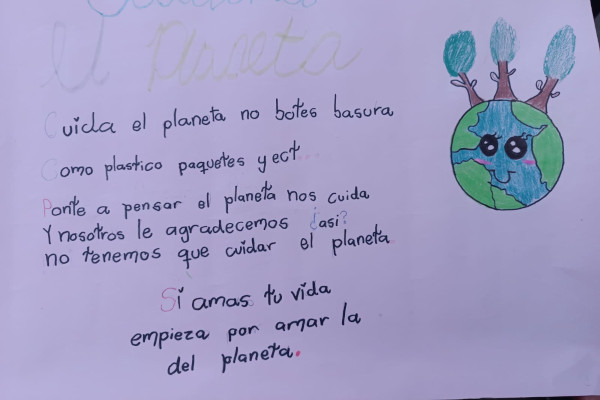 el Planeta
Cuida el planeta no botes basura
Como plastico paquetes y ect...
Ponte a pensar el planeta nos cuida
Y nosotros le agradecemos ¿asi?
no tenemos que cuidar el planeta.
Si amas tu vida
empieza por amar la
del planeta.